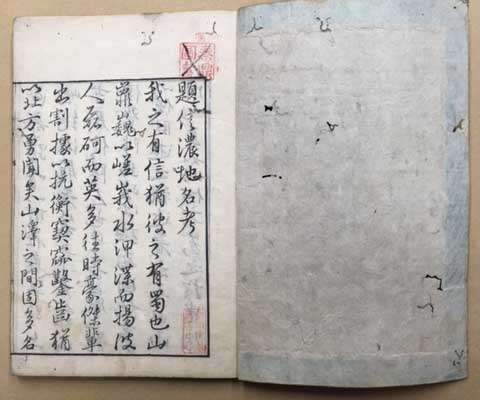 題信濃地名考
我之有信猶彼之有蜀也山
巃巍以嵯峩水泙渫而揚波
人磊砢而英多往時豪傑輩
出割據以抗衡窫窳鑿齒猶
以北方勇聞矣山澤之間固多名